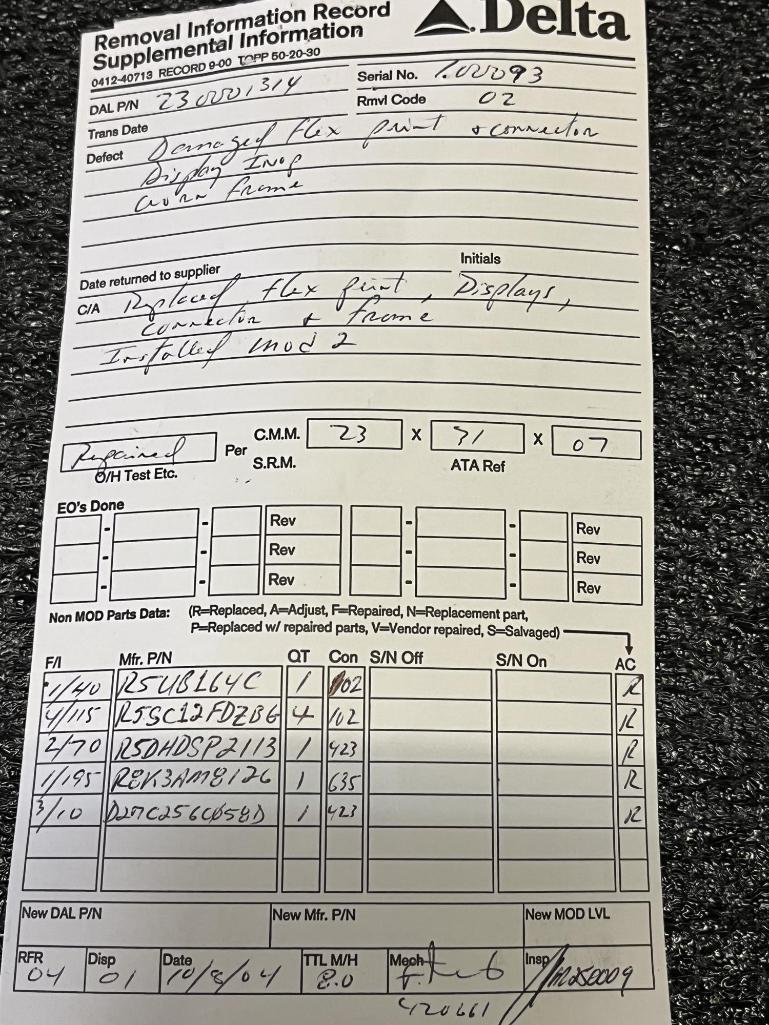 Removal Information Record
Supplemental Information
0412-40713 RECORD 9-00 TOPP 50-20-30
Delta
DAL P/N 230001314
Serial No. 100093
Rmvl Code 02
Trans Date
Defect Damaged flex print & connector
Display Inop
worn frame
Date returned to supplier
Initials
C/A Replaced flex print, Displays,
connector & frame
Installed mod 2
Repaired
O/H Test Etc.
Per C.M.M. 23 X 31 X 07
S.R.M. ATA Ref
EO's Done
- - Rev - - Rev
- - Rev - - Rev
- - Rev - - Rev
Non MOD Parts Data: (R=Replaced, A=Adjust, F=Repaired, N=Replacement part,
P=Replaced w/ repaired parts, V=Vendor repaired, S=Salvaged)
F/I Mfr. P/N QT Con S/N Off S/N On AC
1/40 R5UB164C 1 102 R
4/115 R5SC12FDZBG 4 102 R
2/70 R5DHDSP2113 1 423 R
1/195 R8K3AM8126 1 635 R
3/10 D27C256C058D 1 423 R
New DAL P/N New Mfr. P/N New MOD LVL
RFR Disp Date TTL M/H Mech Insp
04 01 10/8/04 8.0
420661